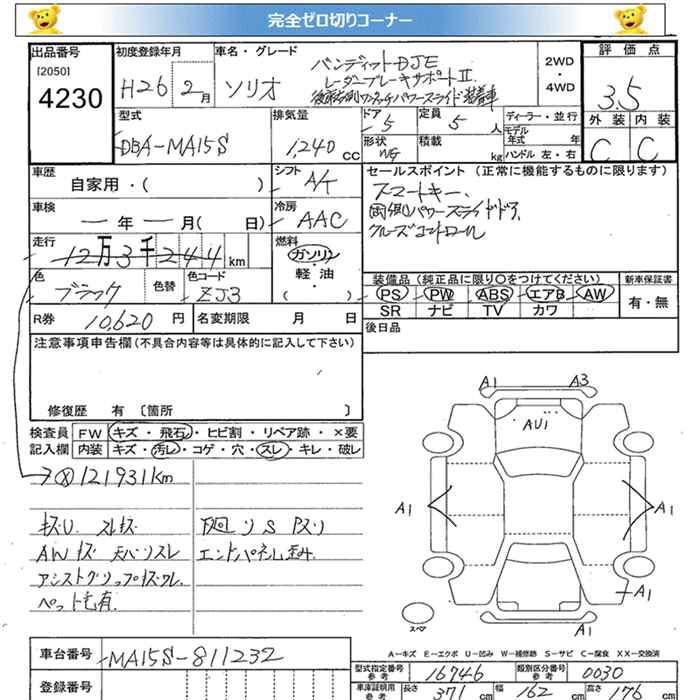 完全ゼロ切りコーナー
出品番号 初度登録年月 車名・グレード 評価点
[2050]
4230
H26 2月 ソリオ
バンディット DJE
レーダーブレーキサポートⅡ
後席両側ワンタッチパワースライド装着車
2WD
・
4WD
3.5
型式 排気量 ドア 定員 ディーラー・並行 外装 内装
DBA-MA15S 1,240 CC 5 5 人
モデル年式 年
C C
形状 積載 kg ハンドル 左・右
WG
車歴 シフト セールスポイント (正常に機能するものに限ります)
自家用・( ) A/T
スマートキー、
両側パワースライドドア
クルーズコントロール
車検 冷房
ー 年 ー 月( 日) AAC
走行 燃料
12万3千244 km ガソリン
・
軽油
・
( )
装備品 (純正品に限り○をつけてください) 新車保証書
色 色替 色コード
ブラック ZJ3
PS PW ABS エアB AW 有・無
SR ナビ TV カワ
R券 10,620 円 名変期限 月 日
後日品
注意事項申告欄 (不具合内容等は具体的に記入して下さい)
修復歴 有 [箇所 ]
検査員 FW キズ・飛石・ヒビ割・リペア跡・×要
記入欄 内装 キズ・汚レ・コゲ・穴・スレ・キレ・破レ
→ⓧ121931km
キズU. スレキズ
AWキズ 天バリスレ エンドパネル歪み.
アシストグリップキズワレ.
ペット毛有.
A1 A3
AU1
A1 A1
A1
スペア
A1
A－キズ E－エクボ U－凹み W－補修跡 S－サビ C－腐食 XX－交換済
車台番号 MA15S-811232
型式指定番号 参考 16746 類別区分番号 参考 0030
登録番号
車庫証明用 参考 長さ 371 cm 幅 162 cm 高さ 176 cm